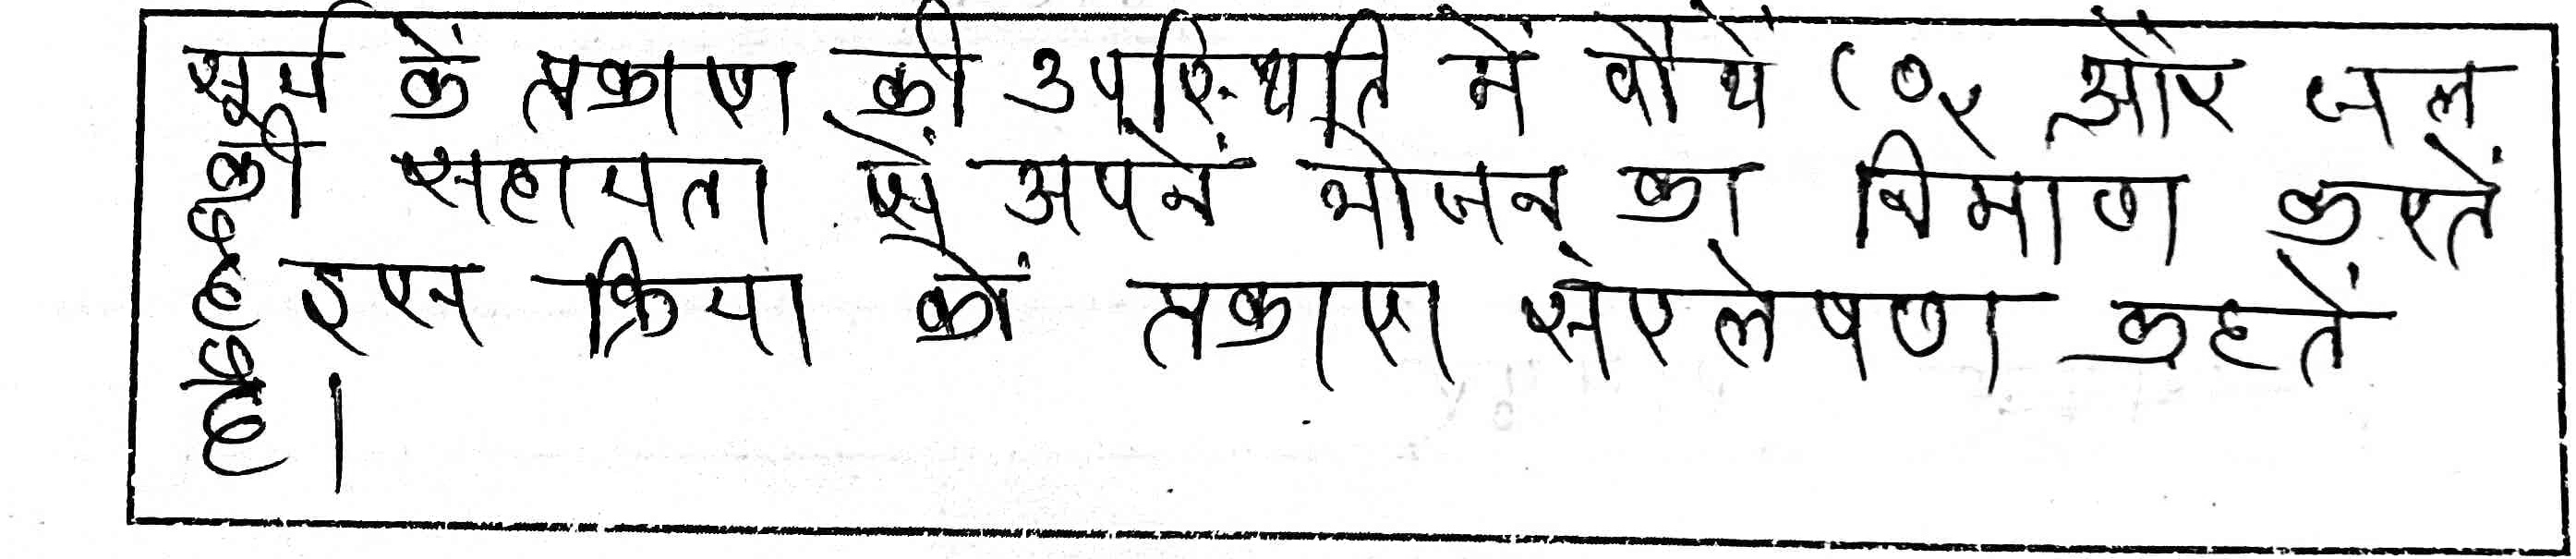 सूर्य कें प्रकाश की उपस्थिति में पौधें CO2 और जल
की सहायता सें अपनें भोजन का निमाण करतें
है इस क्रिया कों प्रकाश संश्लेषण कहतें
है।